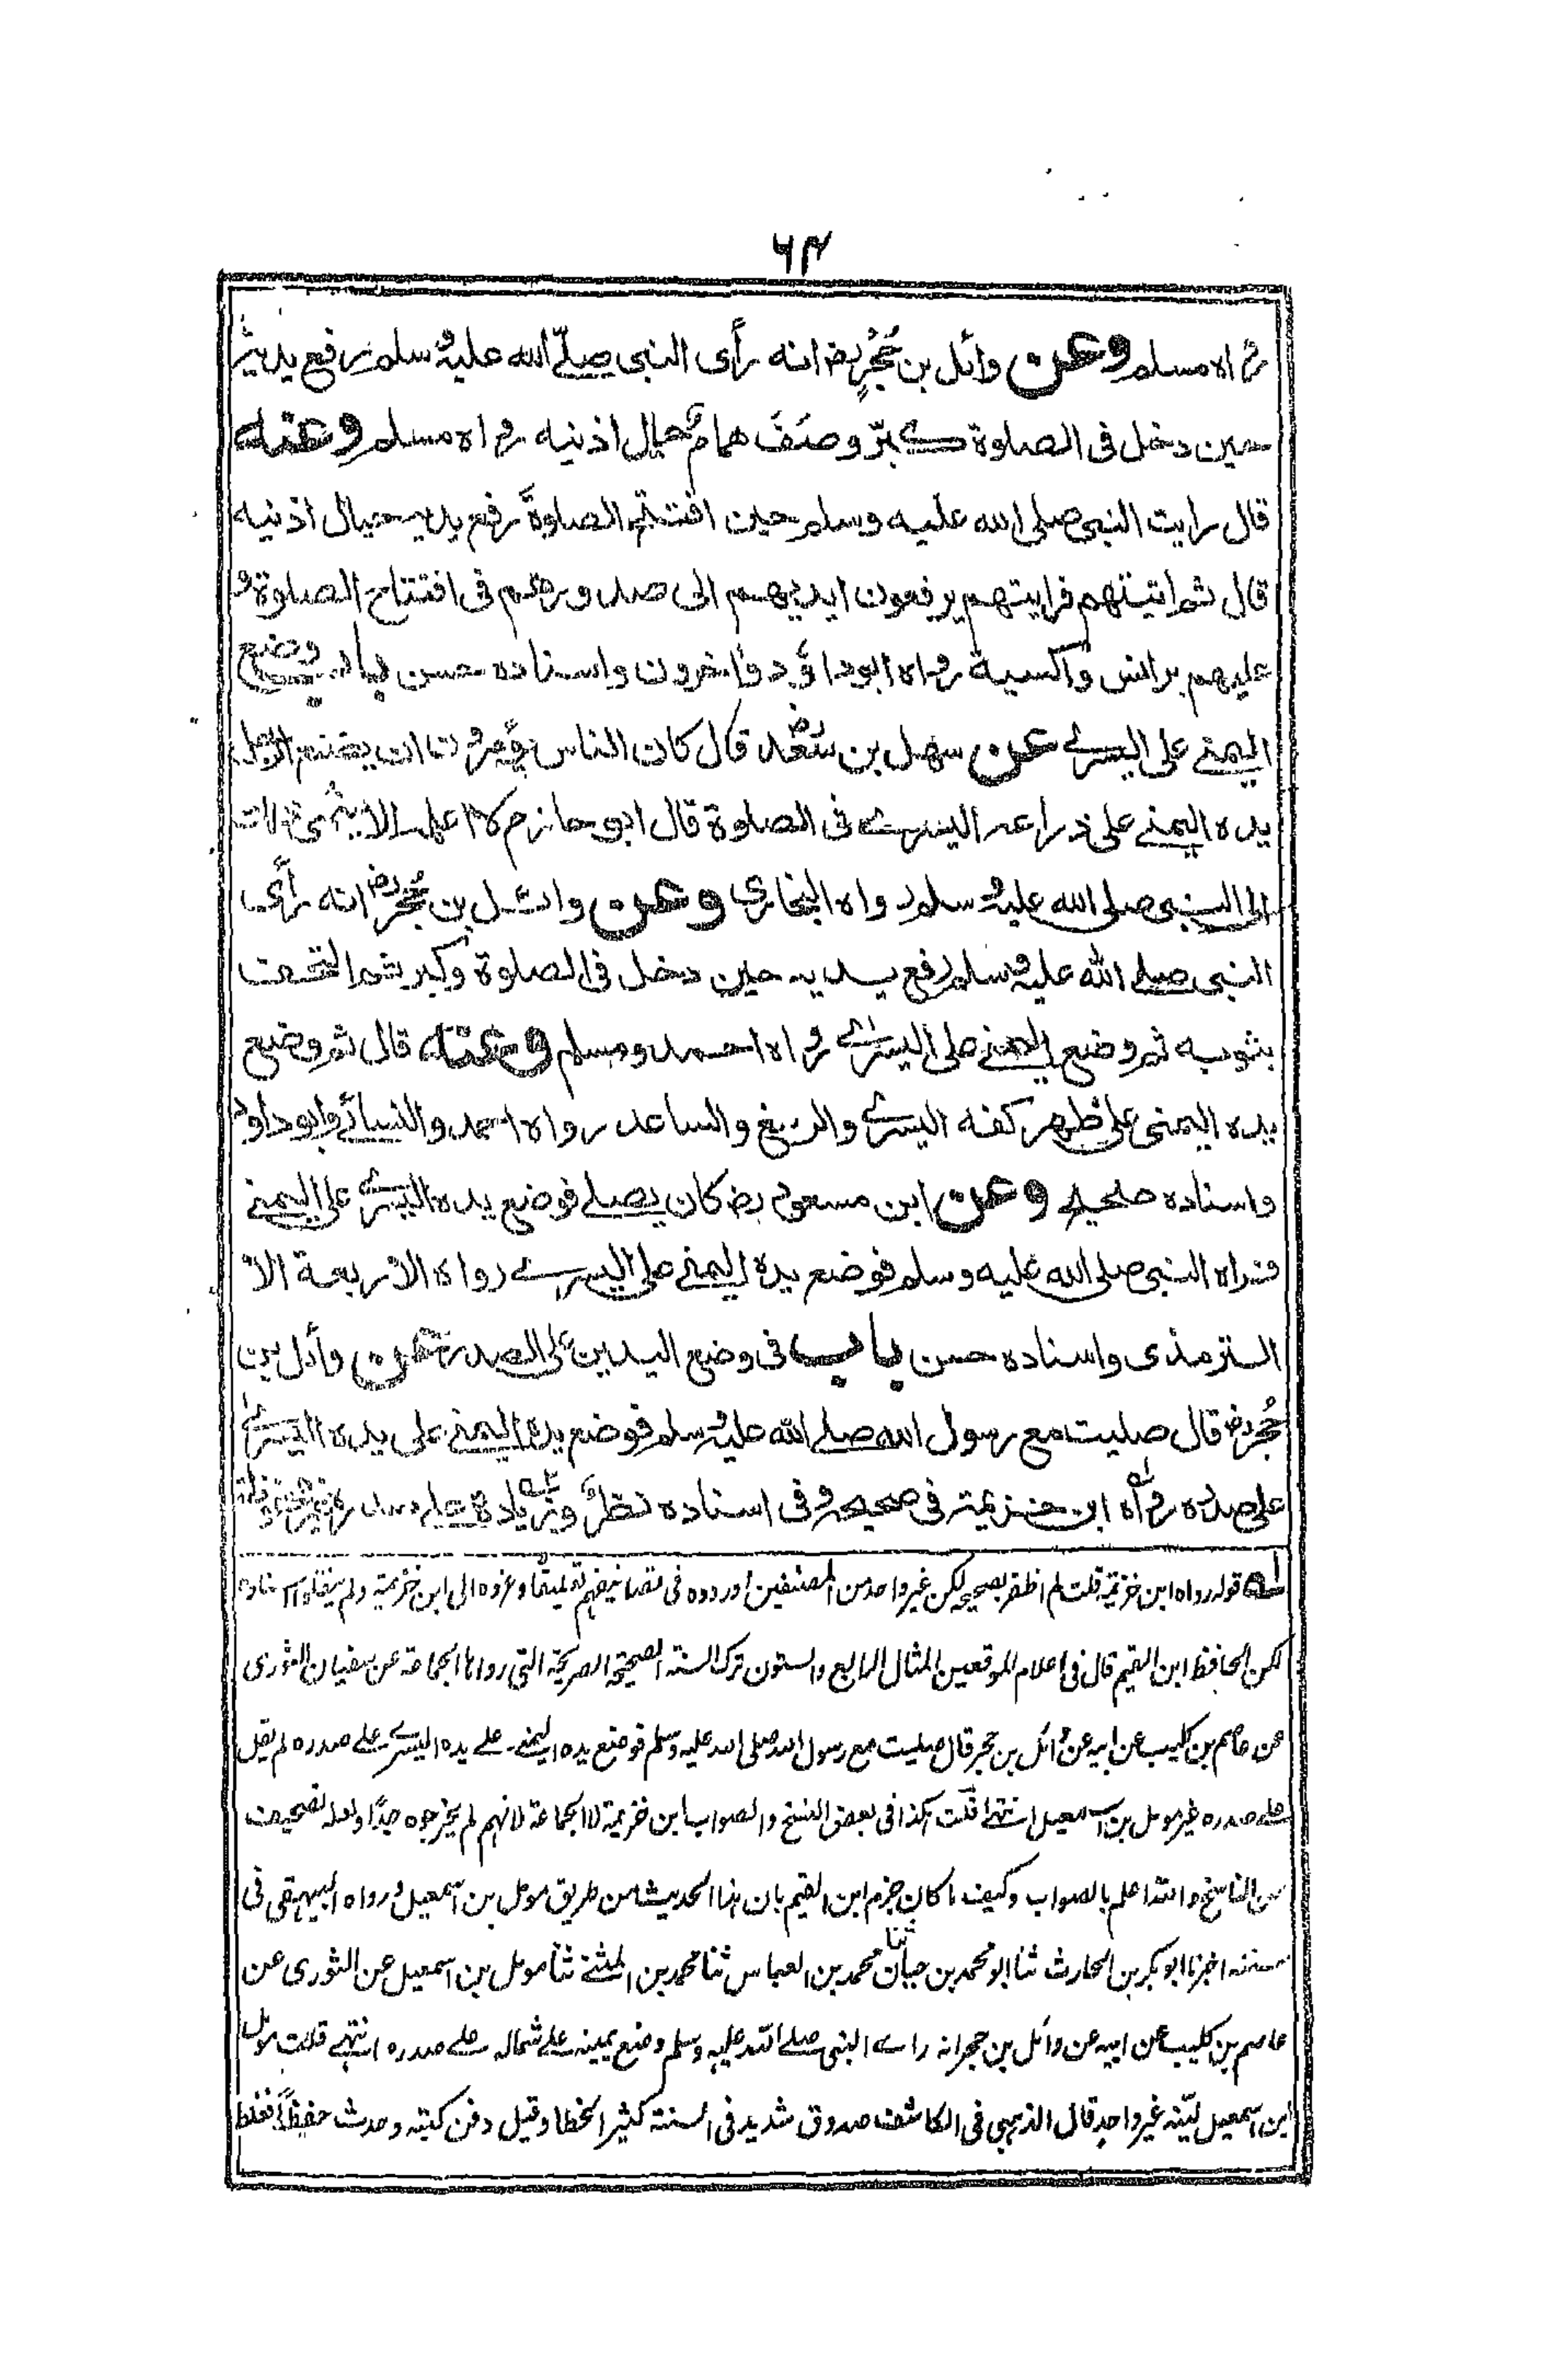 ٦٤
رواه مسلم وعن وائل بن حُجْرٍ رض انه رأى النبى صلى الله عليه وسلم رفع يديه
حين دخل فى الصلوة كبّر وصَفَ همام حيال اذنيه رواه مسلم وعنه
قال رايت النبى صلى الله عليه وسلم حين افتتح الصلوة رفع يديه حيال اذنيه
قال ثم اتيتهم فرايتهم يرفعون ايديهم الى صدورهم فى افتتاح الصلوة و
عليهم برانس واكسية رواه ابوداؤد وآخرون واسناده حسن باب وضع
اليمنى على اليسرى عن سهل بن سَعْد رض قال كان الناس يؤمرون ان يضع الرجل
يده اليمنى على ذراعه اليسرى فى الصلوة قال ابو حازم لا اعلمه الا ينمى ذلك
الى النبى صلى الله عليه وسلم رواه البخارى وعن وائل بن حُجْر رض انه رأى
النبى صلى الله عليه وسلم رفع يديه حين دخل فى الصلوة وكبر ثم التحف
بثوبه ثم وضع اليمنى على اليسرى رواه احمد ومسلم وعنه قال ثم وضع
يده اليمنى على ظهر كفه اليسرى والرسغ والساعد رواه احمد والنسائى وابوداود
واسناده صحيح وعن ابن مسعود رض كان يصلى فوضع يده اليسرى على اليمنى
فراه النبى صلى الله عليه وسلم فوضع يده اليمنى على اليسرى رواه الاربعة الا
الترمذى واسناده حسن باب فى وضع اليدين على الصدر عن وائل بن
حُجْر رض قال صليت مع رسول الله صلى الله عليه وسلم فوضع يده اليمنى على يده اليسرى
على صدره رواه ابن خزيمة فى صحيحه وفى اسناده نظر وزيادة على صدره غير محفوظة
قوله رواه ابن خزيمة قلت لم اظفر بصحيحه لكن غير واحد من المصنفين اوردوه فى تصانيفهم تعليقا وعزوه الى ابن خزيمة ولم ينقلوا اسناده
لكن الحافظ ابن القيم قال فى اعلام الموقعين المثال الرابع والستون ترك السنة الصحيحة الصريحة التى رواها الجماعة عن سفيان الثورى
عن عاصم بن كليب عن ابيه عن وائل بن حجر قال صليت مع رسول الله صلى الله عليه وسلم فوضع يده اليمنى على يده اليسرى على صدره لم يقل
على صدره غير مومل بن اسمعيل انتهى قلت هكذا فى بعض النسخ والصواب ابن خزيمة لا الجماعة لانهم لم يخرجوه جدًا ولعله تصحيف
من الناسخ والله اعلم بالصواب وكيف ما كان جزم ابن القيم بان هذا الحديث من طريق مومل بن اسمعيل ورواه البيهقى فى
سننه اخبرنا ابو بكر بن الحارث ثنا ابو محمد بن حبان ثنا محمد بن العباس ثنا محمد بن المثنى ثنا مومل بن اسمعيل عن الثورى عن
عاصم بن كليب عن ابيه عن وائل بن حجر انه راى النبى صلى الله عليه وسلم وضع يمينه على شماله على صدره انتهى قلت مومل
ابن اسمعيل ليّنه غير واحد قال الذهبى فى الكاشف صدوق شديد فى السنة كثير الخطا وقيل دفن كتبه وحدث حفظًا فغلط